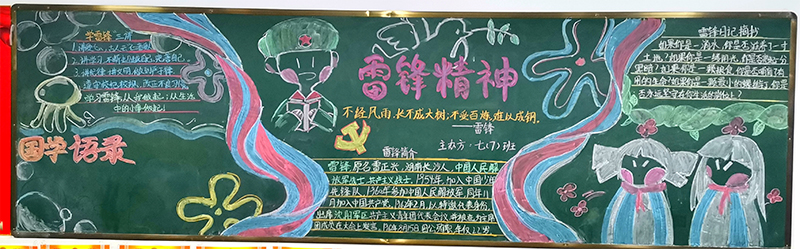 学雷锋 三讲
学习雷锋,从我做起;从生活
中的小事做起!
国学语录
雷锋精神
不经风雨,长不成大树;不受百炼,难以成钢。
——雷锋
主办方:七(7)班
雷锋简介
雷锋 原名雷正兴,湖南长沙人,中国人民解
放军战士 共产主义战士,1954年加入中国少年
先锋队,1960年参加中国人民解放军 同年11
月加入中国共产党。1961年
出席沈阳军区共产主义青年团代表会议
雷锋日记摘抄
如果你是一滴水,你是否滋润了一寸
土地?如果你是一线阳光,你是否照亮了一分
黑暗?如果你是一颗粮食,你是否哺育了有
用的生命?如果你是一颗最小的螺丝钉,你是
否永远坚守在你生活的岗位上?